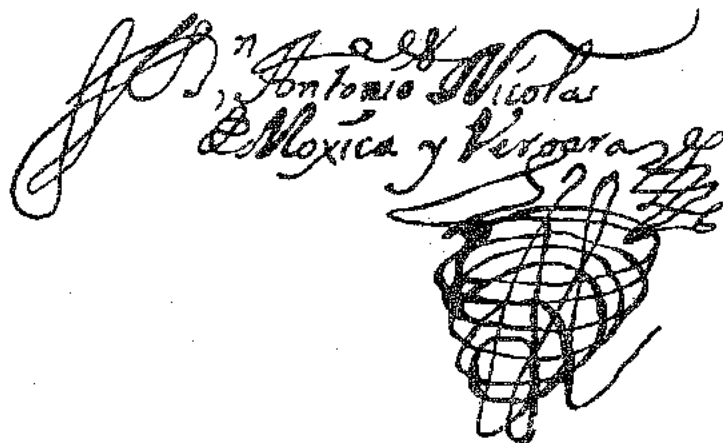 Dn Antonio Nicolas
de Moxica y Vergara